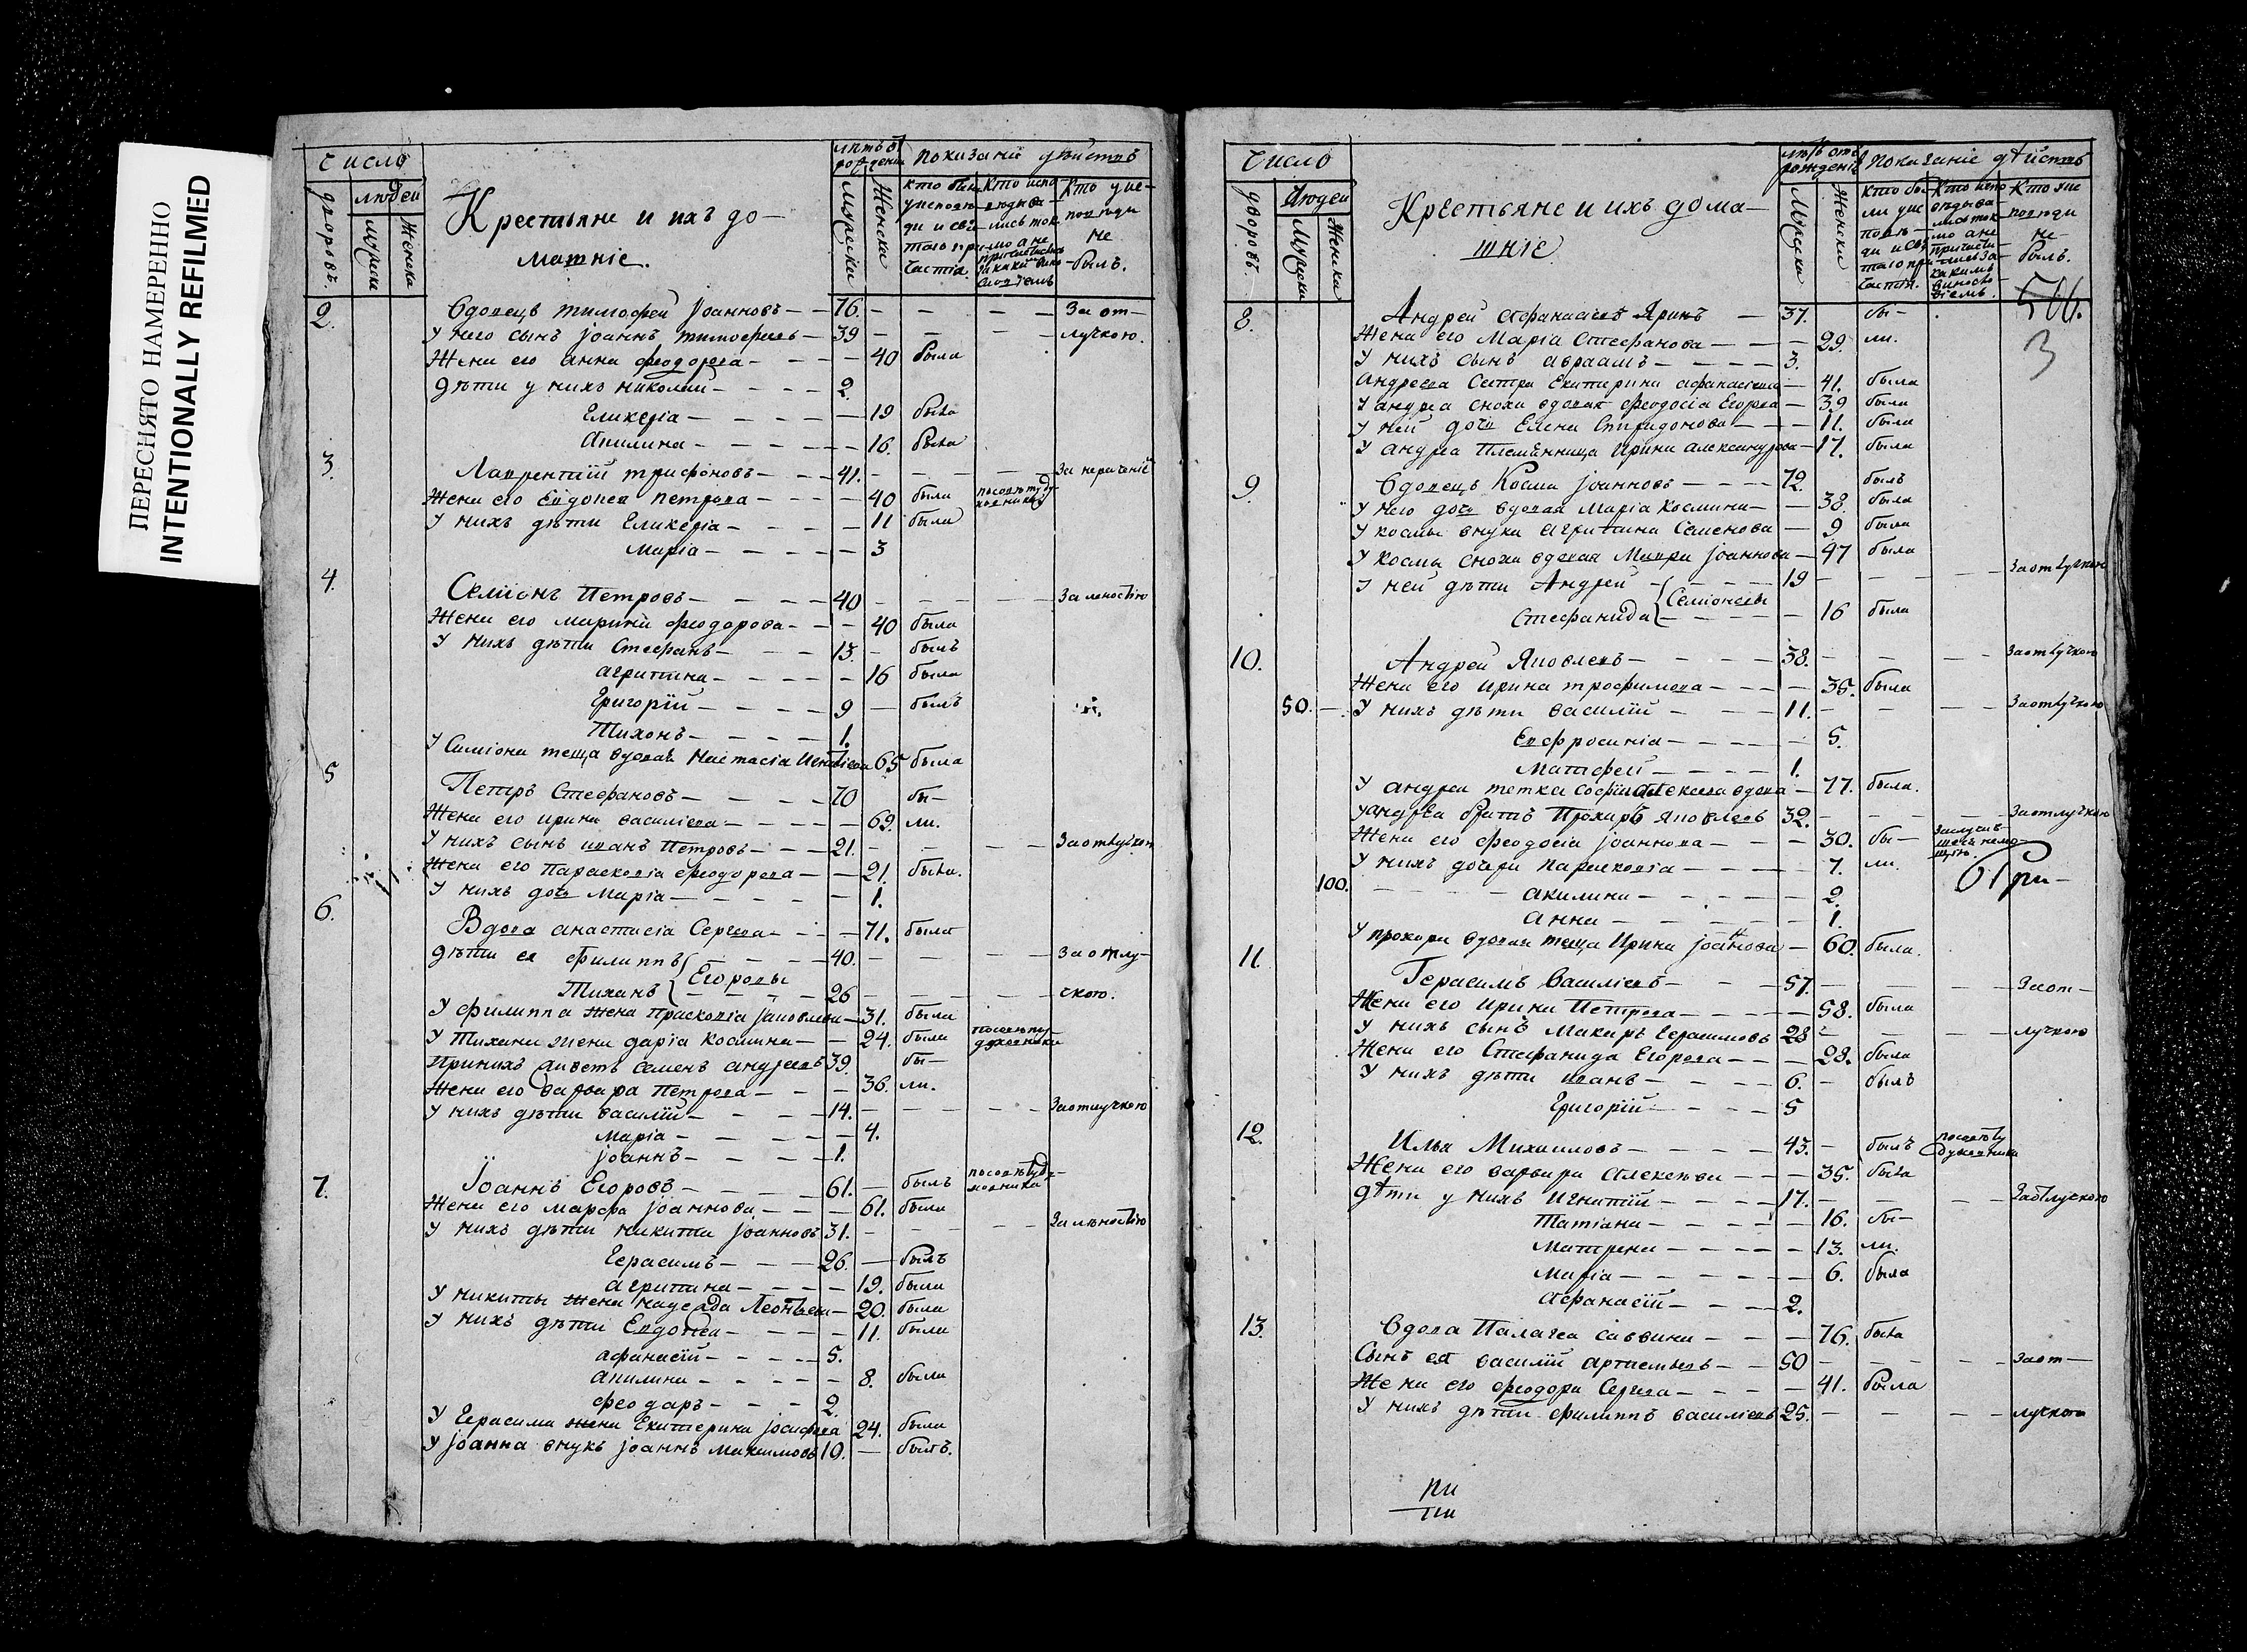 ПЕРЕСНЯТО НАМЕРЕННО
INTENTIONALLY REFILMED
число
лѣтъ отъ рожденія
показаніе дѣйствъ
дворовъ.
людей
мужеска
женска
Крестьяне и ихъ до-
матніе.
Мужеска
Женска
кто был у исповѣди и свя-таго при-частія.
Кто испо-вѣдыва-лись ток-мо а не причастились за какимъ вино-словіемъ
Кто у ис-повѣди не былъ.
2. Вдовецъ тимофей Іоанновъ — 76. — — — За от-
У него сынъ Іоаннъ тимофеевъ — 39 — — — лучкою.
Жена его анна феодорова — — 40 была
Дѣти у нихъ николай — 2.
Гликерія — — 19 была
Акилина — — 16. была
3. Лаврентий трифоновъ — 41. — — — За нераченіе
Жена его Евдокея петрова — — 40 была по совѣту ду-ховника
У нихъ дѣти Гликерія — — 11 была
Марія — — 3
4. Семіонъ Петровъ — 40 — — — За леностію
Жена его марина феодорова — — 40 была
У нихъ дѣти Стефанъ — 13. — былъ
агрипина — — 16 была
Григорій — 9 — былъ
Тихонъ — 1.
У Симіона теща вдовая Настасіа 65 была
5 Петръ Стефановъ — 70 бы-
Жена его ирина василіева — — 69. ли.
У нихъ сынъ иванъ Петровъ — 21. — — — За отлучкою
Жена его Параскевіа феодорова — — 21. была.
У нихъ дочь Маріа — — 1.
6. Вдова анастасіа Сергева — — 71. была
Дѣти ея филиппъ Егоровы — 40. — — — За отлу-
Тиханъ — 26 — — — чкою.
У филиппа жена Прасковіа Іаковлева — 31. была
У Тихана жена даріа Космина — — 24. была по совѣту духовника
При нихъ живетъ Семенъ андреевъ 39. бы-
Жена его варвара Петрова — — 36. ли.
У нихъ дѣти василій — 14. — — — За отлучкою
Маріа — — 4.
Іоаннъ — 1.
7. Іоаннъ Егоровъ — 61. — былъ по совѣту ду-ховника
Жена его марфа Іоаннова — — 61. была
У нихъ дѣти никита Іоанновъ 31. — — — За лѣностію
Герасимъ — 26. — былъ
агрипина — — 19. была
У никиты жена надежда Леонтьева — 20. была
У нихъ дѣти Евдокеа — — 11. была
афанасій — 5.
Акилина — — 8. была
феодаръ — 2.
У Герасима жена Екатерина Іосифова 24. была
У Іоанна внукъ Іоаннъ Максимовъ 10. — былъ.
Число
лѣтъ отъ рожденія
Показаніе дѣйствъ
дворовъ.
Людей
Мужеска
Женска
Крестьяне и ихъ дома-
шніе
Мужеска
Женска
Кто бы-ли у ис-повѣ-ди и свя-таго при-частія.
Кто испо-вѣдыва-лись ток-мо а не причасти-лись за какимъ виносло-віемъ.
Кто у ис-повѣди не былъ.
566.
3
8. Андрей Афанасіевъ Яринъ — 37. бы-
Жена его Маріа Стефанова — — 29. ли.
У нихъ сынъ авраамъ — 3.
Андреева Сестра Екатерина афанасіева — 41. была
У андреа сноха вдовая феодосіа Егорова — 39 была
У ней дочь Елена Спиридонова — — 11. была
У андреа Племянница Ирина александрова — 17. была
9. Вдовецъ Косма Іоанновъ — 72. былъ
У него дочь вдовая Маріа Космина — — 38. была
У космы внука агрипина Семенова — 9 была
У космы сноха вдовая Мавра Іоаннова — 47 была
У ней дѣти Андрей Семіоневы — 19 — — — За отлучкою
Стефанида — — 16 была
10. Андрей Яковлевъ — 38. — — — За отлучкою
Жена его ирина трофимова — — 35. была
50. — У нихъ дѣти василій — 11. — — — За отлучкою
Евфросиніа — — 5.
Матфей — 1.
У андреа тетка софіа Алексева вдова — 77. была.
У андреа братъ Прохоръ Яковлевъ 32. — — — За отлучкою
Жена его феодосіа Іоаннова — — 30. бы-
У нихъ дочери параскевіа — — 7. ли.
100. акилина — — 2.
анна — — 1.
У прохора вдовая теща Ирина Іоаннова — 60. была.
11. Герасимъ Василіевъ — 57. — — — За от-
Жена его ирина Петрова — — 58. была
У нихъ сынъ Макаръ Герасимовъ 28 — — — лучкою
Жена его Стефанида Егорова — — 28. была
У нихъ дѣти иванъ — 6. — былъ
Григорій — 5
12. Илья Михаиловъ — 43. — былъ по совѣту духовника
Жена его варвара Алексѣева — — 35. была
дѣти у нихъ Игнатій — 17. — — — За отлучкою
Татіана — — 16. бы-
Матрена — — 13. ли.
Маріа — — 6. была
Афанасій — 2.
13. Вдова Палагеа саввина — — 76. была
Сынъ ея василій артемьевъ — 50 — — — За от-
Жена его феодора Сергева — — 41. была
У нихъ дѣти филиппъ василіевъ 25. — — — лучкою